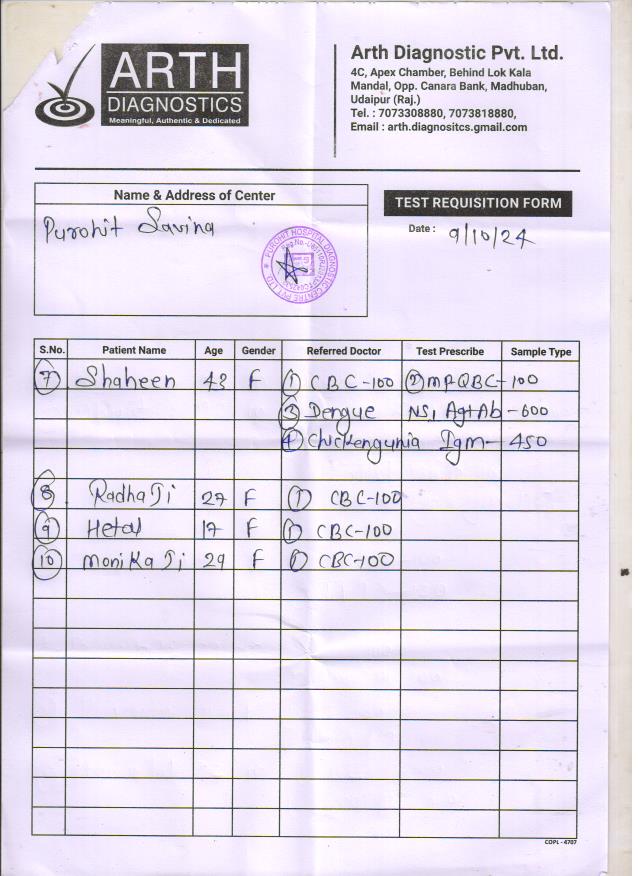 ARTH
DIAGNOSTICS
Meaningful, Authentic & Dedicated
Arth Diagnostic Pvt. Ltd.
4C, Apex Chamber, Behind Lok Kala
Mandal, Opp. Canara Bank, Madhuban,
Udaipur (Raj.)
Tel. : 7073308880, 7073818880,
Email : arth.diagnositcs.gmail.com
Name & Address of Center
Purohit Savina
PUROHIT HOSPITAL DIAGNOSTIC CENTRE PVT. LTD.
TEST REQUISITION FORM
Date : 9/10/24
S.No. Patient Name Age Gender Referred Doctor Test Prescribe Sample Type
7 Shaheen 43 F 1 CBC-100 2 MPQBC-100
3 Dengue NS1 Ag+Ab-600
4 Chickengunia Igm-450
8 Radha Ji 27 F 1 CBC-100
9 Hetal 17 F 1 CBC-100
10 Monika Ji 29 F 1 CBC-100
COPL - 4707